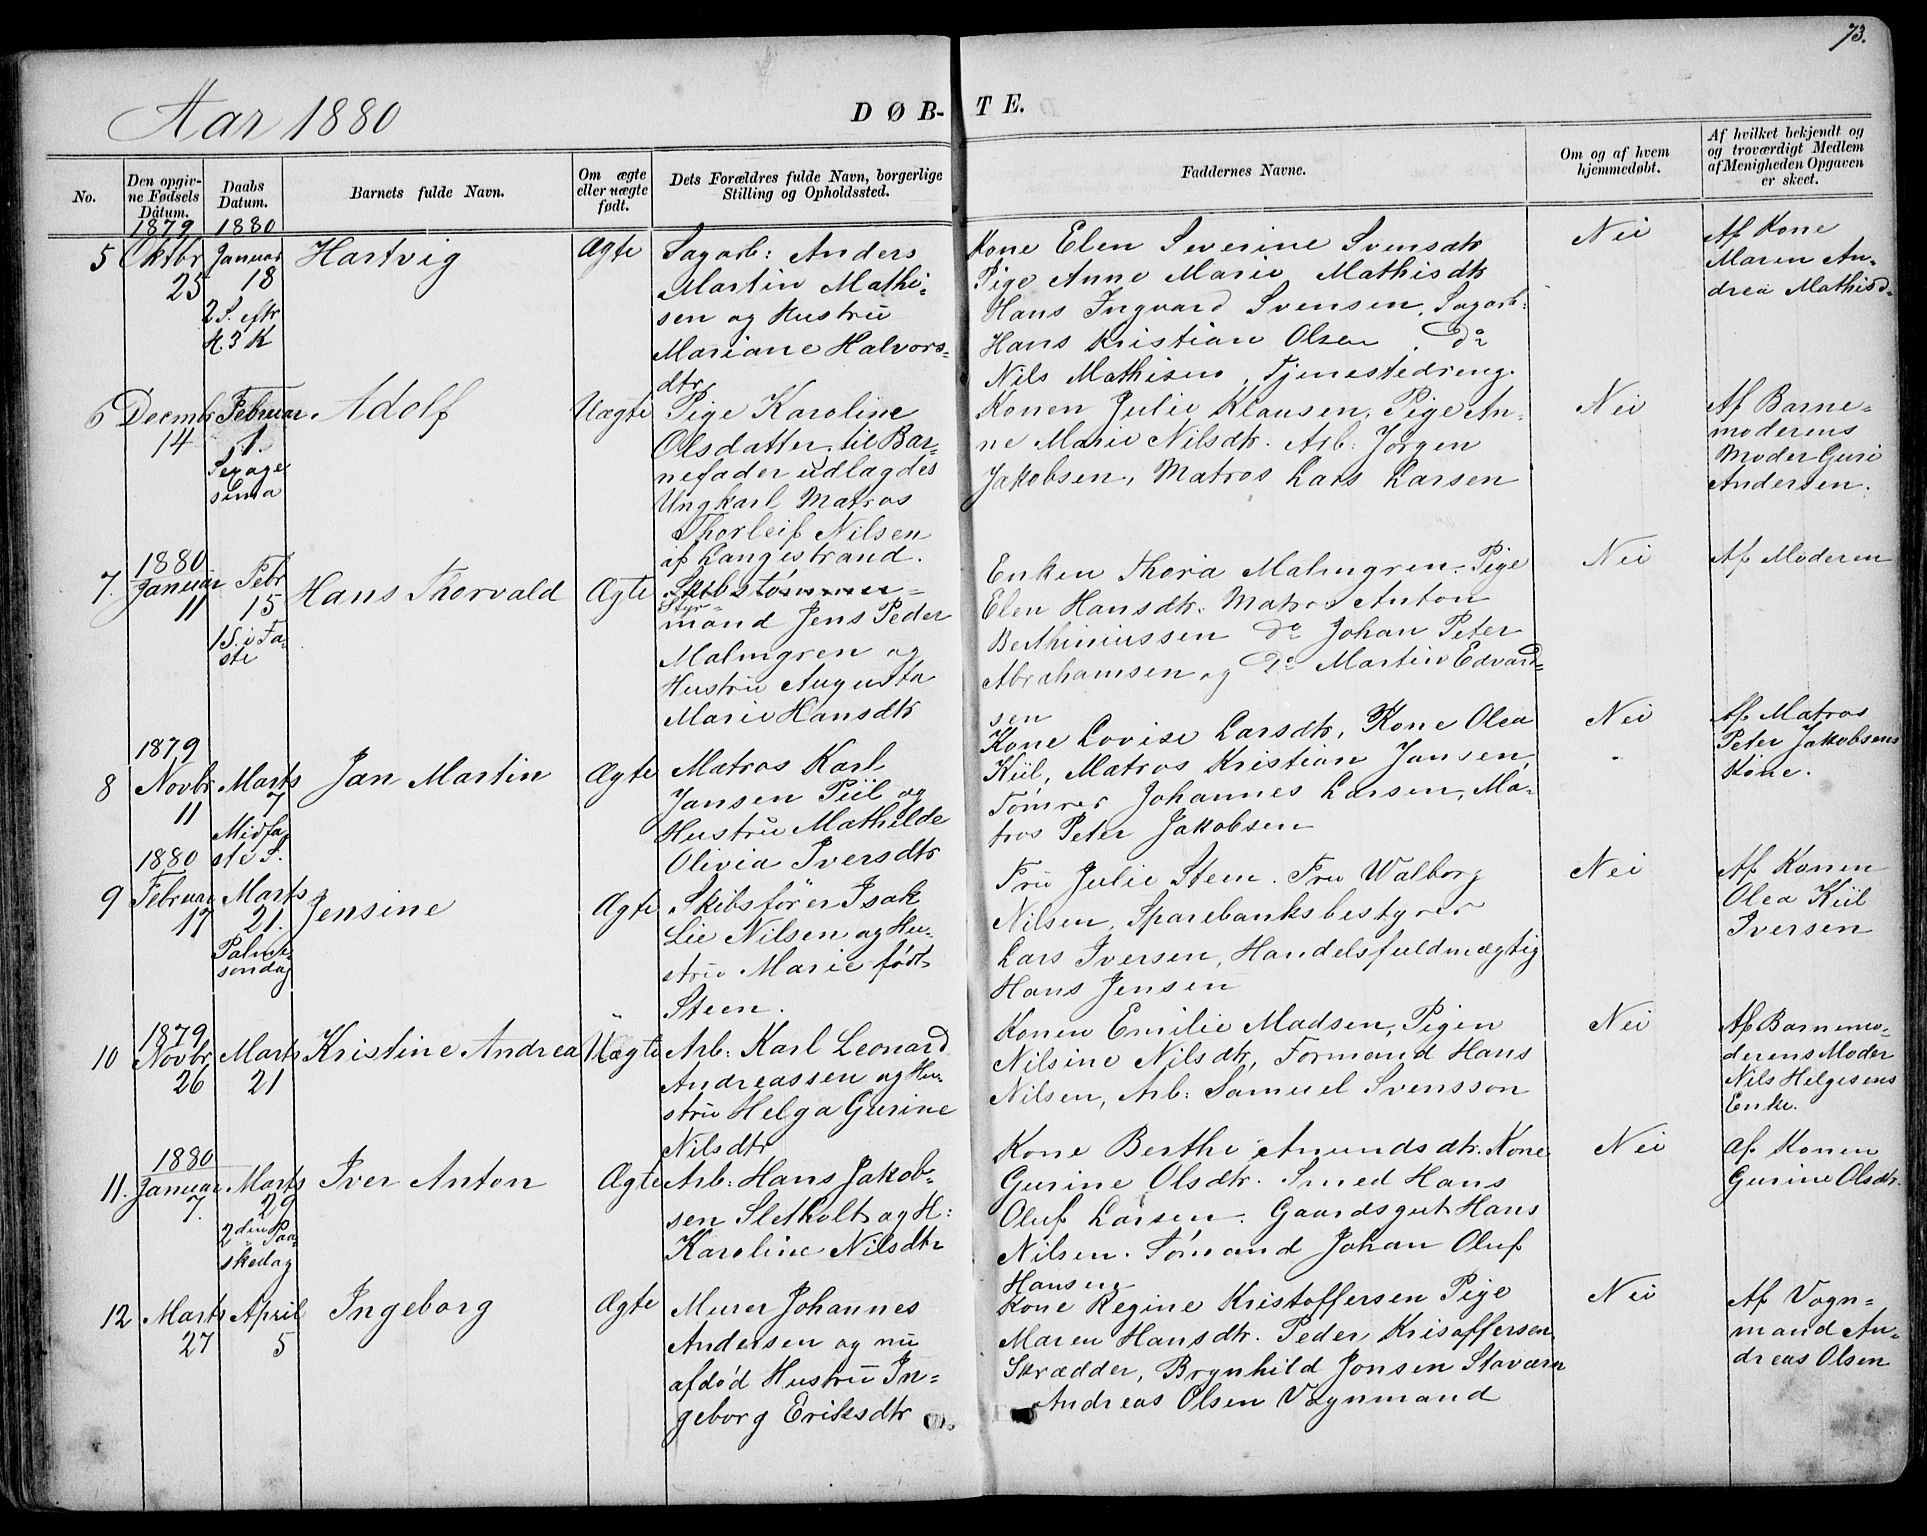 73.
Aar 1880
DØB-TE.
No.
Den opgiv-
ne Fødsels
Datum.
Daabs
Datum.
Barnets fulde Navn.
Om ægte
eller uægte
født.
Dets Forældres fulde Navn, borgerlige
Stilling og Opholdssted.
Faddernes Navne.
Om og af hvem
hjemmedøbt.
Af hvilket bekjendt og
og troværdigt Medlem
af Menigheden Opgaven
er skeet.
1879
1880
5
Oktbr
25
Januar
18
2 S. eftr
H. 3 K
Hartvig
Ægte
Sagarb: Anders
Martin Mathi-
sen og Hustru
Mariane Halvors-
dtr
Kone Elen Severine Svensdtr
Pige Anne Marie Mathisdtr
Hans Ingvard Svensen, Sagarb:
Hans Kristian Olsen do
Nils Mathisen, Tjenestedreng.
Nei
Af Kone
Maren An-
drea Mathisd-
6
Decmbr
14
Februar
1.
Sexage
sima
Adolf
Uægte
Pige Karoline
Olsdatter, til Bar-
nefader udlagdes
Ungkarl Matros
Thorleif Nilsen
af Langestrand.
Konen Julie Klausen, Pige An-
ne Marie Nilsdtr. Arb: Jørgen
Jakobsen, Matros Lars Larsen
Nei
Af Barne-
moderens
Moder Guri
Andersen.
1880
7.
Januar
11
Febr
15
1 S. i Fa-
ste
Hans Thorvald
Ægte
Skibstømmer-
Styr-
mand Jens Peder
Malmgren og
Hustru Augusta
Marie Hansdtr
Enken Thora Malmgren. Pige
Elen Hansdtr. Matros Anton
Berthiniussen do Johan Peter
Abrahamsen og do Martin Edvard-
sen
Nei
Af Moderen
1879
8
Novbr
11
Marts
7
Midfa
ste S.
Jan Martin
Ægte
Matros Karl
Jansen Piil og
Hustru Mathilde
Olivia Iversdtr
Kone Lovise Larsdtr, Kone Olea
Kiil, Matros Kristian Jansen,
Tømrer Johannes Larsen, Ma-
tros Peter Jakobsen
Nei
Af Matros
Peter Jakobsens
Kone.
1880
9
Februar
17
Marts
21.
Palme-
søndag
Jensine
Ægte
Skibsfører Isak
Lie Nilsen og Hu-
stru Marie født
Steen.
Fru Julie Steen. Fru Walborg
Nilsen, Sparebanksbestyrer
Lars Iversen, Handelsfuldmægtig
Hans Jensen
Nei
Af Konen
Olea Kiil
Iversen
1879
10
Novbr
26
Marts
21
Kristine Andrea
Uægte
Arb: Karl Leonard
Andreassen og Hu-
stru Helga Gurine
Nilsdtr
Konen Emilie Madsen, Pigen
Nilsine Nilsdtr, Formand Hans
Nilsen, Arb: Samuel Svensson
Nei
Af Barnemo-
derens Moder
Nils Helgesens
Enke.
1880
11.
Januar
7.
Marts
29
2den Paa-
skedag
Iver Anton
Ægte
Arb: Hans Jakob-
sen Sletholt og H:
Karoline Nilsdtr
Kone Berthe Amundsdtr. Kone
Gurine Olsdtr. Smed Hans
Oluf Larsen. Gaardsgut Hans
Nilsen. Sømand Johan Oluf
Hansen
Nei
af Konen
Gurine Olsdtr.
12
Marts
27
April
5
Ingeborg
Ægte
Murer Johannes
Andersen og nu
afdød Hustru In-
geborg Eriksdtr
Kone Regine Kristoffersen Pige
Maren Hansdtr. Peder Krisoffersen
Skrædder, Brynhild Jonsen Staværn
Andreas Olsen Vognmand
Nei
Af Vogn-
mand An-
dreas Olsen